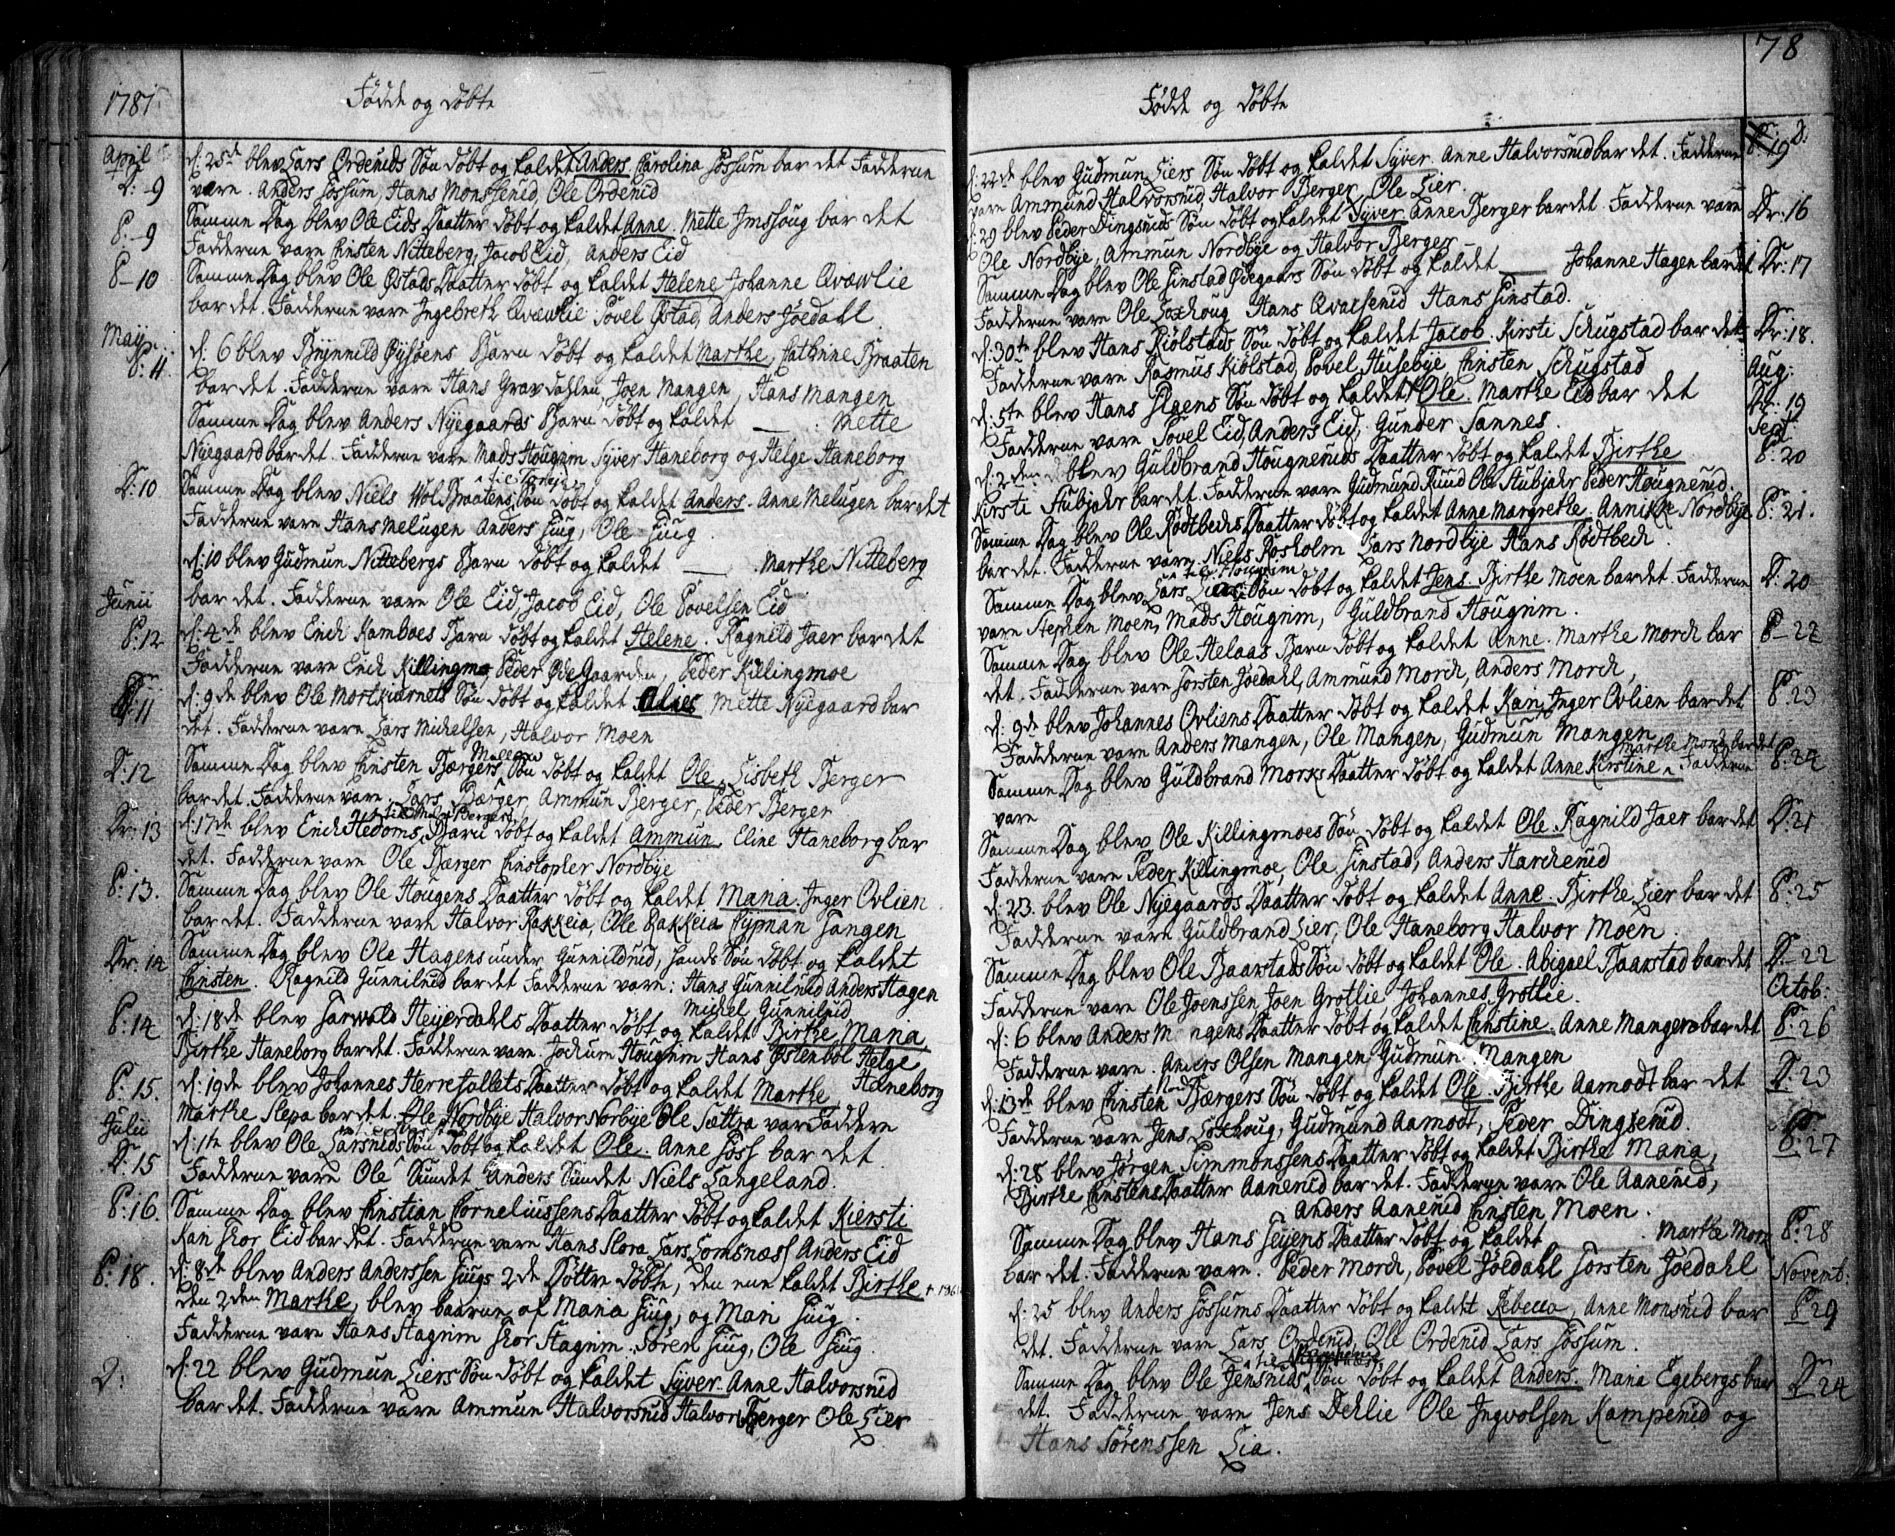 1781
Fødde og døbte
April
D: 9
d: 25de blev Lars Ordenids Søn døbt og kaldet Anders. Carolina Fossum bar det Fadderne
vare. Anders Fossum, Hans Monssenid, Ole Ordenid
P: 9
Samme Dag blev Ole Eids Daatter døbt og kaldet Anne. Mette Imshoug bar det
Fadderne vare Christen Nitteberg, Jacob Eid, Anders Eid
P 10
Samme Dag blev Ole Østads Daatter døbt og kaldet Helene Johanne Qvævlie
bar det. Fadderne vare Ingebreth Qvævlie Povel Østad, Anders Joedahl
May
P: 11.
d: 6 blev Brynnild Øysøens Barn døbt og kaldet Marthe, Cathrine Braaten
bar det. Fadderne vare Hans Gravdahlen, Joen Mangen, Hans Mangen
Samme Dag blev Anders Nyegaards Barn døbt og kaldet __ . Mette
Nyegaard bar det. Fadderne vare Mads Hougnim Syver Haneborg og Helge Haneborg
D: 10
Samme Dag blev Niels Wold Braatens Søn døbt og kaldet Anders. Anne Melugen bar det
Fadderne vare Hans Melugen Anders Juug, Ole Juug
d: 10 blev Gudmun Nittebergs Barn døbt og kaldet __ . Marthe Nitteberg
bar det. Fadderne vare Ole Eid, Jacob Eid, Ole Povelsen Eid
Junii
P: 12
d: 4de blev Erich Kamboes Barn døbt og kaldet Helene. Ragnild Jaer bar det
Fadderne vare Erich Killingmo Peder Ødegaarden, Peder Killingmoe
11
d: 9de blev Ole Mortkiernets Søn døbt og kaldet Mette Nyegaard bar
det. Fadderne vare Lars Michelsen, Halvor Moen
D: 12
Samme Dag blev Christen Bærgers Søn døbt og kaldet Ole. Lisbeth Berger
bar det. Fadderne vare, Lars Bærger, Ammun Berger, Peder Berger
Dr: 13
d: 17de blev Erich Hedoms Barn døbt og kaldet Ammun. Eline Haneborg bar
det. Fadderne vare Ole Bærger Christopher Nordbye
P: 13.
Samme Dag blev Ole Hougens Daatter døbt og kaldet Maria. Inger Ovlien
bar det. Fadderne vare Halvor Rakkeia, Ole Rakkeia Sypman Tangen
Dr: 14
Samme Dag blev Ole Hagens under Gunnildrud, hands Søn døbt og kaldet
Christen. Ragnild Gunnilrud bar det Fadderne vare: Hans Gunnilrud Anders Hagen
Michel Gunnilrud
P: 14
d: 18de blev Torwald Heyerdahls Daatter døbt og kaldet Birthe Maria
Birthe Haneborg bar det. Fadderne vare. Jochum Hougnim Hans Østenbøl Helge
Haneborg
P: 15.
d: 19de blev Johannes Herrefallets Daatter døbt og kaldet Marthe
Marthe Slepa bar det. Ole Nordbye Halvor Norbye Ole Sættra var Faddere
Julii
D: 15
d: 1te blev Ole Larsnids Søn døbt og kaldet Ole. Anne Foss bar det
Fadderne vare Ole Sundet Anders Sundet Niels Langeland.
P: 16.
Samme Dag blev Christian Corneliussens Daatter døbt og kaldet Kiersti
Kari Thor Eid bar det. Fadderne vare Hans Slora Lars Lomsnæss Anders Eid
P: 18.
d: 8de blev Anders Anderssen Juugs 2de Døttre døbte, den ene kaldet Birthe
den 2den Marthe, blev baarne af Maria Juug, og Mari Juug.
Fadderne vare Hans Hagnim Thor Hagnim. Søren Juug, Ole Juug.
D:
d: 22 blev Gudmun Liers Søn døbt og kaldet Syver. Anne Halvorsnid
bar det. Fadderne vare Ammun Halvorsnid Halvor Berger Ole Lier
78
Fødde og døbte
19
d: 22de blev Gudmun Liers Søn døbt og kaldet Syver. Anne Halvorsnid bar det. Fadderne
vare Ammund Halvorsnid, Halvor Berger, Ole Lier.
Dr: 16
d: 29 blev Peder Dingsnids Søn døbt og kaldet Syver. Anne Berger bar det. Fadderne vare
Ole Nordbye, Ammun Nordbye og Halvor Berger
Dr: 17
Samme Dag blev Ole Finstad Ødegaars Søn døbt og kaldet __ Johanne Hagen bar det
Fadderne vare Ole Loxhoug Hans Qvalsenid Hans Finstad.
Dr: 18.
d: 30te blev Hans Kiølstads Søn døbt og kaldet Jacob. Kirsti Schugstad bar det
Fadderne vare Rasmus Kiølstad, Povel Husebye Christen Schugstad
Aug:
Dr: 19
d: 5te blev Hans Hagens Søn døbt og kaldet Ole. Marthe Eid bar det
Fadderne vare Povel Eid, Anders Eid, Gunder Sannes.
Sept
P: 20
d: 2den blev Guldbrand Hougnenids Daatter døbt og kaldet Birthe
Kirsti Stubjahr bar det. Fadderne vare Gudmund Ruud Ole Stubjahr Peder Hougnenid.
P: 21.
Samme Dag blev Ole Rødtbechs Daatter døbt og kaldet Anne Margrethe. Annikke Nordbye
bar det. Fadderne vare Niels Rosholm Lars Nordbye Hans Rødtbech.
D: 20
Samme Dag blev Lars Søn døbt og kaldet Jens. Birthe Moen bar det. Fadderne
vare Stephen Moen, Mads Hougnim, Guldbrand Hougnim.
P- 22
Samme Dag blev Ole Helaas Barn døbt og kaldet Anne. Marthe Morch bar
det. Fadderne vare Torsten Joedahl, Ammund Morch, Anders Morch,
P: 23
d: 9de blev Johannes Ovliens Daatter døbt og kaldet Kari Inger Ovlien bar det
Fadderne vare Anders Mangen, Ole Mangen, Gudmun Mangen
P: 24
Marthe Morch bar det
Samme Dag blev Guldbrand Morks Daatter døbt og kaldet Anne Kirstine. Fadderne
vare
D: 21
Samme Dag blev Ole Killingmoes Søn døbt og kaldet Ole. Ragnild Jaer bar det
Fadderne vare Peder Killingmoe, Ole Finstad, Anders Harchenid
P: 25
d: 23. blev Ole Nyegaards Daatter døbt og kaldet Anne. Birthe Lier bar det
Fadderne vare Guldbrand Lier, Ole Haneborg Halvor Moen.
D- 22
Samme Dag blev Ole Baarstads Søn døbt og kaldet Ole. Abigael Baarstad bar det
Fadderne vare Ole Joenssen, Joen Grotlie, Johannes Grotlie.
Octob:
P: 26
d: 6 blev Anders Mangens Daatter døbt og kaldet Christine. Anne Mangen bar det
Fadderne vare. Anders Olsen Mangen Gudmun Mangen
D: 23
d: 13de blev Christen Bærgers Søn døbt og kaldet Ole. Birthe Aamodt bar det
Fadderne vare Jens Loxhoug, Gudmund Aamodt, Peder Dingsenid.
P: 27
d: 28 blev Jørgen Simmonssens Daatter døbt og kaldet Birthe Maria,
Birthe Christens Daatter Aanerud bar det. Fadderne vare Ole Aanenid,
Anders Aanenid Christen Moen.
P: 28
Samme Dag blev Hans Daatter døbt og kaldet __ . Marthe Mork
bar det. Fadderne vare. Peder Morch, Povel Joedahl Torsten Joedahl
Novemb:
P 29
d: 25 blev Anders Fossums Daatter døbt og kaldet Rebecca, Anne Monsnid bar
det. Fadderne vare Lars Ordenid, Ole Ordenid Lars Fossum.
D 24
Samme Dag blev Ole Jensnids Søn døbt og kaldet Anders. Maria Egebergs bar
det. Fadderne vare Jens Dehlie Ole Ingvolsen Kampenid og
Hans Sørenssen Lia.